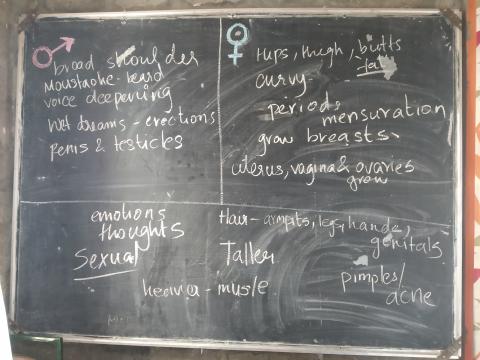 broad shoulder
Moustache - beard
voice deepening
Wet dreams - erections
penis & testicles
Hips, thigh, butts
fat
curvy -
- periods
mensuration
grow breasts
uterus, vagina & ovaries
grow
emotions
thoughts
Sexual
Hair - armpits, legs, hands,
genitals
Taller
pimples/
acne
heavier - musle